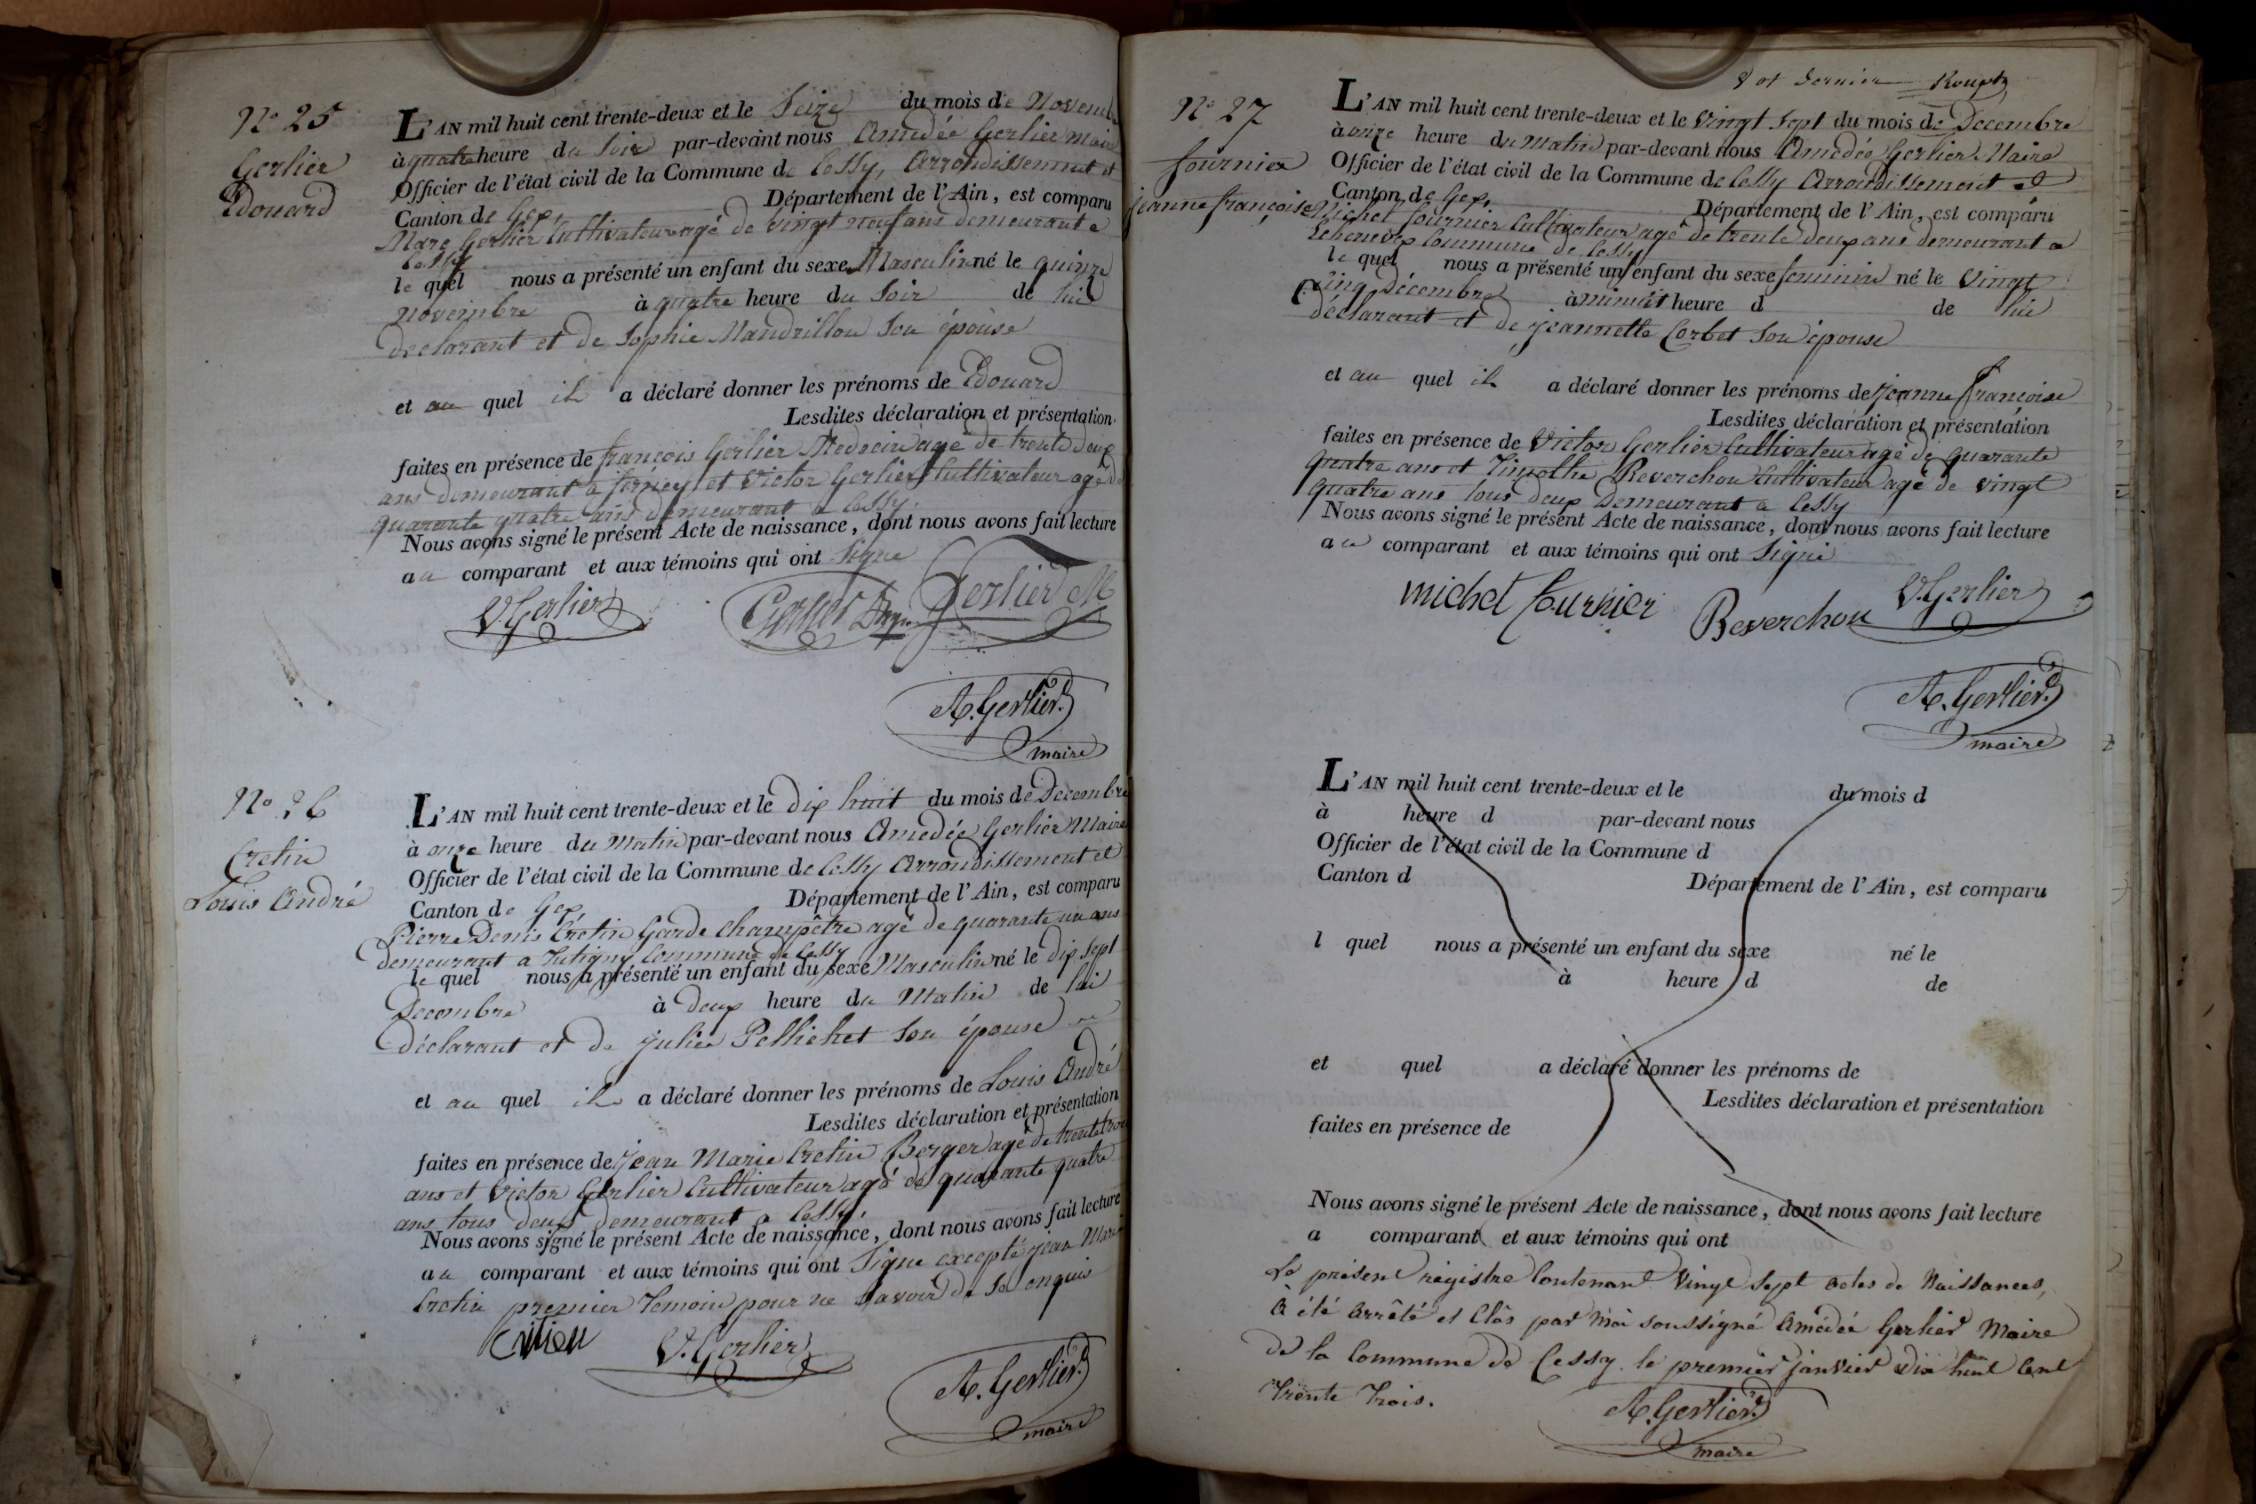 N° 25
Gerlier
Edouard
L'AN mil huit cent trente-deux et le Seize du mois de Novembre
à quatre heure du Soir par-devant nous Amedée Gerlier Maire
Officier de l'état civil de la Commune de Cessy, Arrondissement et
Canton de Gex, Département de l'Ain, est comparu
Marc Gerlier Cultivateur agé de vingt neuf ans demeurant a
Cessy
le quel nous a présenté un enfant du sexe Masculin né le quinze
novembre à quatre heure du Soir de lui
declarant et de Sophie Mandrillon Son épouse
et au quel il a déclaré donner les prénoms de Edouard
Lesdites déclaration et présentation
faites en présence de françois Gerlier Medecin agé de trente deux
ans demeurant a ferney et Victor Gerlier Cultivateur agé de
quarante quatre ans demeurant a Cessy.
Nous avons signé le présent Acte de naissance, dont nous avons fait lecture
au comparant et aux témoins qui ont Signe
V. Gerlier Gerlier Gerlier M
A. Gerlier
maire
N° 26
Cretin
Louis André
L'AN mil huit cent trente-deux et le dix huit du mois de Decembre
à onze heure du Matin par-devant nous Amedée Gerlier Maire
Officier de l'état civil de la Commune de Cessy Arrondissement et
Canton de Gex Département de l'Ain, est comparu
Pierre Denis Cretin Garde Champêtre agé de quarante un ans
demeurant a Tutigny Commune de Cessy
le quel nous a présenté un enfant du sexe Masculin né le dix sept
Decembre à deux heure du Matin de lui
déclarant et de julie Pellichet Son épouse
et au quel il a déclaré donner les prénoms de Louis André
Lesdites déclaration et présentation
faites en présence de jean Marie Cretin Berger agé de trente trois
ans et Victor Gerlier Cultivateur agé de quarante quatre
ans tous deux demeurant a Cessy.
Nous avons signé le présent Acte de naissance, dont nous avons fait lecture
au comparant et aux témoins qui ont Signe excepté jean Marie
Cretin premier Temoin pour ne Savoir de Se enquis
V. Gerlier
A. Gerlier
maire
8 et dernier
N° 27
fournier
jeanne françoise
L'AN mil huit cent trente-deux et le vingt Sept du mois de Decembre
à onze heure du Matin par-devant nous Amedée Gerlier Maire
Officier de l'état civil de la Commune de Cessy Arrondissement et
Canton de Gex, Département de l'Ain, est comparu
Michel fournier Cultivateur agé de trente deux ans demeurant a
Commune de Cessy
le quel nous a présenté un enfant du sexe feminin né le vingt
Cinq décembre à minuit heure d de lui
déclarant et de jeannette Corbet Son épouse
et au quel il a déclaré donner les prénoms de jeanne françoise
Lesdites déclaration et présentation
faites en présence de Victor Gerlier Cultivateur agé de quarante
quatre ans et Timothe Reverchon Cultivateur agé de vingt
quatre ans tous deux Demeurant a Cessy
Nous avons signé le présent Acte de naissance, dont nous avons fait lecture
au comparant et aux témoins qui ont Signé
michel fournier Reverchon V. Gerlier
A. Gerlier
maire
L'AN mil huit cent trente-deux et le du mois d
à heure d par-devant nous
Officier de l'état civil de la Commune d
Canton d Département de l'Ain, est comparu
l quel nous a présenté un enfant du sexe né le
à heure d de
et quel a déclaré donner les prénoms de
Lesdites déclaration et présentation
faites en présence de
Nous avons signé le présent Acte de naissance, dont nous avons fait lecture
a comparant et aux témoins qui ont
Le présent régistre Contenant Vingt Sept actes de Naissances,
a été arrêté et Clôs par Moi soussigné Amédée Gerlier Maire
de la Commune de Cessy le premier janvier Dix huit Cent
Trente Trois.
A. Gerlier
maire